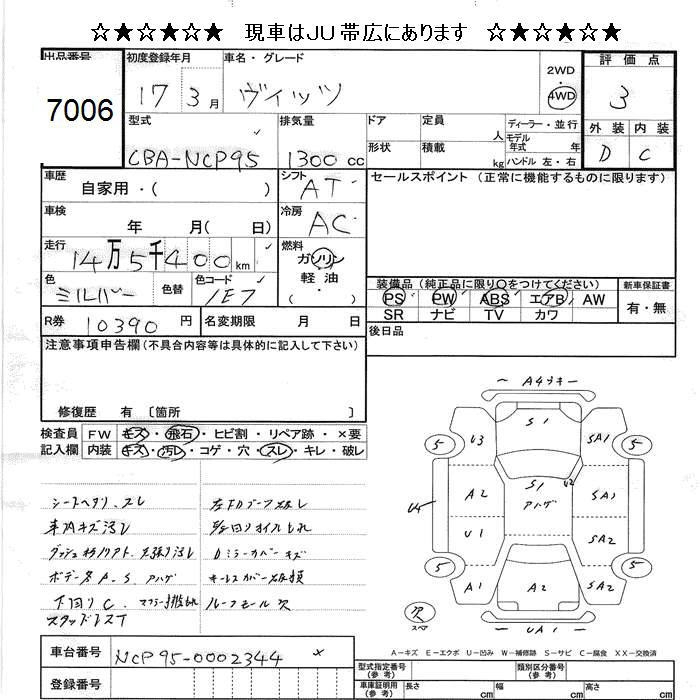 ☆★☆★☆★☆ 現車はJU帯広にあります ☆★☆★☆★☆
出品番号 初度登録年月 車名・グレード 2WD 評価点
7006 17 3月 ヴィッツ 4WD 3
型式 排気量 ドア 定員 人 ディーラー・並行 外装 内装
CBA-NCP95 1300cc 形状 積載 kg モデル年式 年 D C
ハンドル 左・右
車歴 シフト セールスポイント (正常に機能するものに限ります)
自家用・( ) AT
車検 冷房
年 月( 日) AC
走行 燃料
14万5千400km ガソリン
軽油
( ・ )
色 色替 色コード 装備品 (純正品に限り○をつけてください) 新車保証書
シルバー 1E7 PS PW ABS エアB AW 有・無
SR ナビ TV カワ
R券 10390円 名変期限 月 日 後日品
注意事項申告欄(不具合内容等は具体的に記入して下さい)
修復歴 有 〔箇所 〕
検査員 FW キズ・飛石・ヒビ割・リペア跡・×要
記入欄 内装 キズ・汚レ・コゲ・穴・スレ・キレ・破レ
シートヘタリ、スレ
車内キズ汚レ
ボデー各A.S アハゲ
下回りC
スタッドレスT
左FDブーツ破レ
Dミラーカバーキズ
キーレスカバー破損
ルーフモール欠
A4ツキ
S1
U3 SA1
5 5
S1 U2
アハゲ
A2 SA1
U5
U1 SA2
5 5
A1 A2 SA2
欠
スペア
UA1
A-キズ E-エクボ U-凹み W-補修跡 S-サビ C-腐食 XX-交換済
車台番号 NCP95-0002344 ×
登録番号
型式指定番号(参考) 類別区分番号(参考)
車庫証明用(参考) 長さ cm 幅 cm 高さ cm